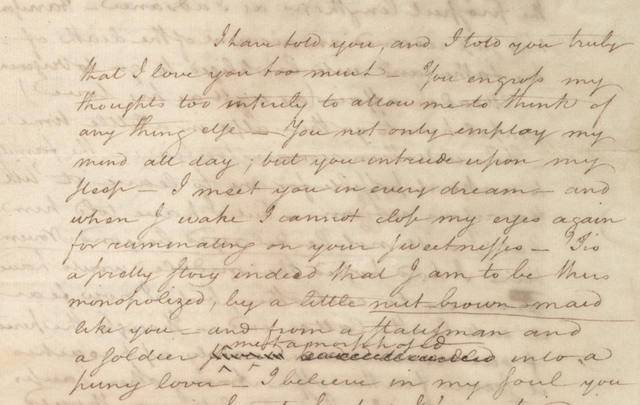 I have told you, and I told you truly
that I love you too much — You engross my
thoughts too intirely to allow me to think of
any thing else — You not only employ my
mind all day; but you intrude upon my
sleep — I meet you in every dream — and
when I wake I cannot close my eyes again
for ruminating on your sweetnesses — 'Tis
a pretty story indeed that I am to be thus
monopolized, by a little nut brown maid
like you — and from a statesman and
a soldier metamorphosed into a
puny lover — I believe in my soul you